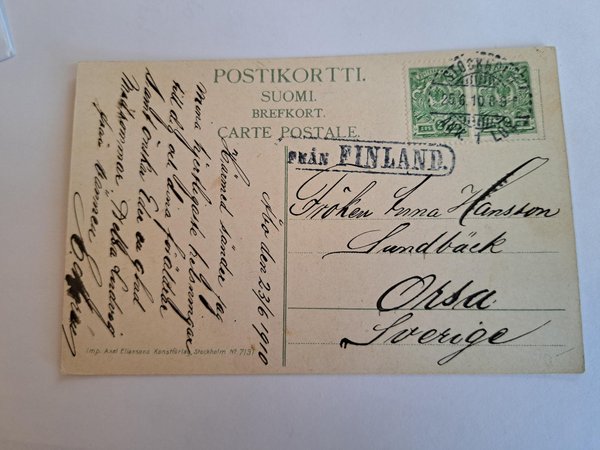 POSTIKORTTI.
SUOMI.
BREFKORT.
CARTE POSTALE.
FRÅN FINLAND.
STOCKHOLM
25.6.10
Åbo den 23/6 1910
Härmed sänder jag
mina hjertligaste helsningar
till dig och dina föräldrar
samt önskar Eder en glad
Midsommar
från vännen
Fröken Anna Hansson
Sundbäck
Orsa
Sverige
Imp. Axel Eliassons Konstförlag, Stockholm Nº 7137